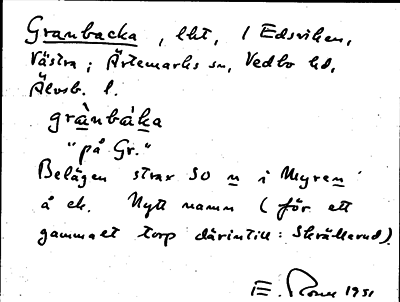 Granbacka, lht, 1 Edsviken,
Västra; Ärtemarks sn, Vedbo hd,
Älvsb. l.
grànbák̲a
"på Gr."
Belägen strax SO n i Myren
å ek. Nytt namn (för ett
gammalt torp därintill: Skrällerud)
E. 1951